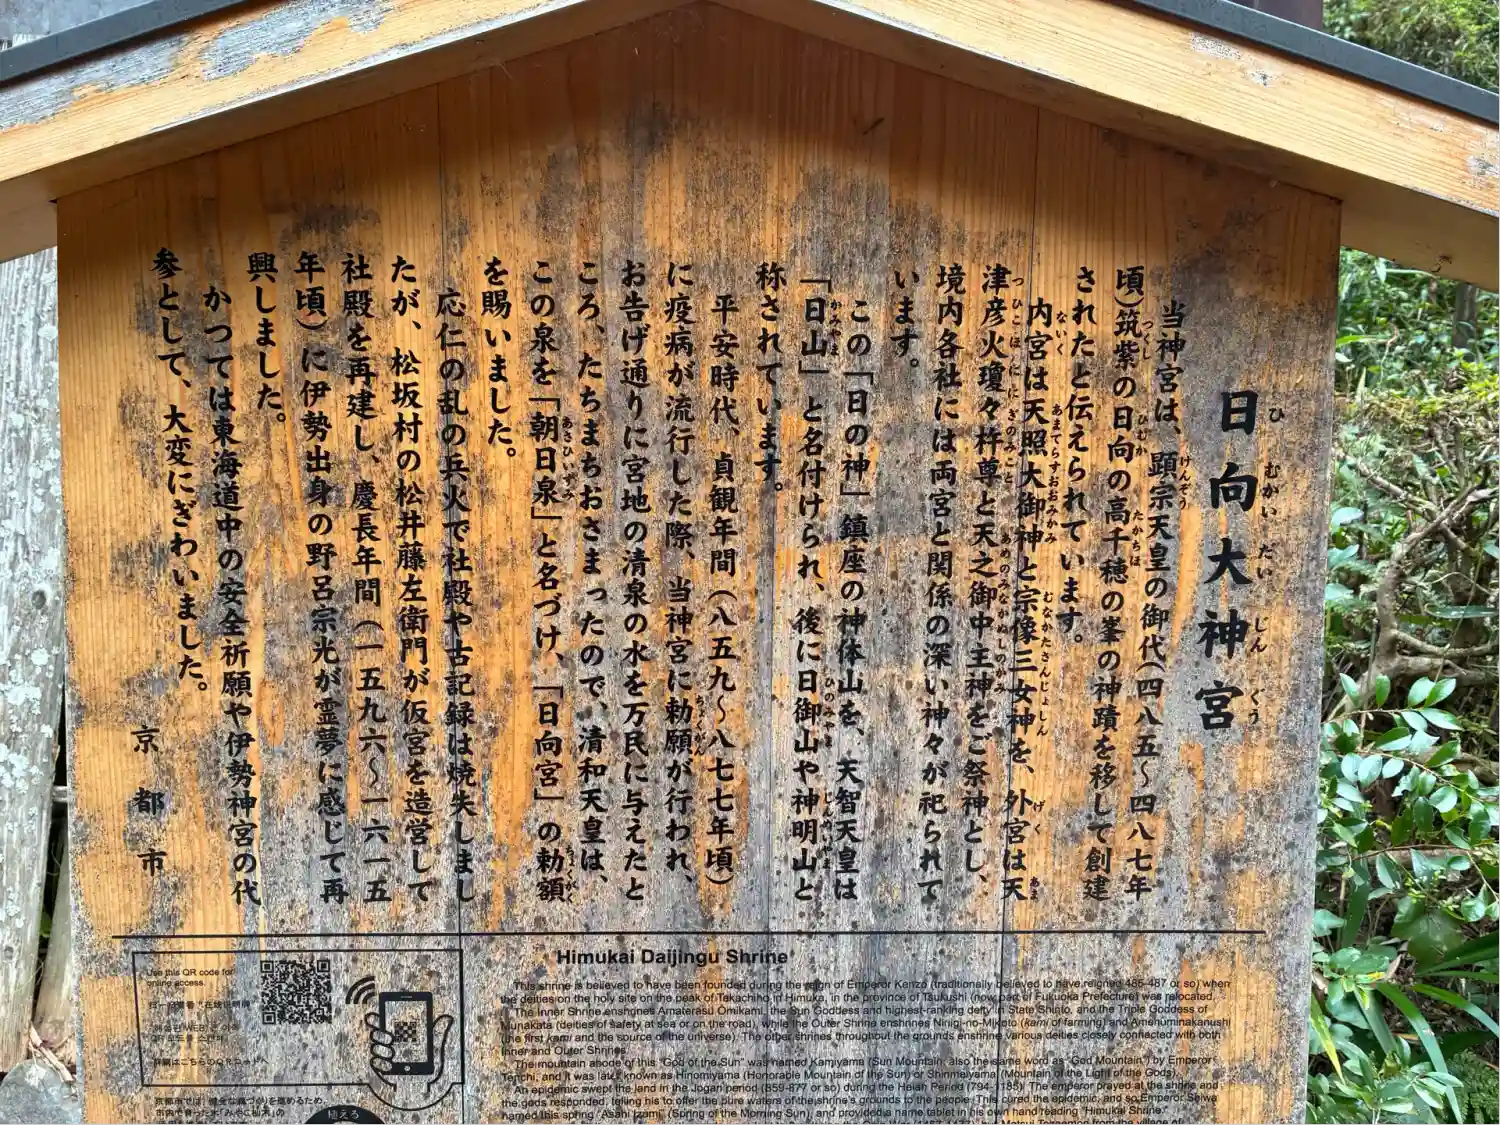 日向大神宮
ひ むかい だい じん ぐう
当神宮は、顕宗天皇の御代(四八五〜四八七年
頃)筑紫の日向の高千穂の峯の神蹟を移して創建
されたと伝えられています。
内宮は天照大御神と宗像三女神を、外宮は天
津彦火瓊々杵尊と天之御中主神をご祭神とし、
境内各社には両宮と関係の深い神々が祀られて
います。
この「日の神」鎮座の神体山を、天智天皇は
「日山」と名付けられ、後に日御山や神明山と
称されています。
平安時代、貞観年間(八五九〜八七七年頃)
に疫病が流行した際、当神宮に勅願が行われ、
お告げ通りに宮地の清泉の水を万民に与えたと
ころ、たちまちおさまったので、清和天皇は、
この泉を「朝日泉」と名づけ、「日向宮」の勅額
を賜いました。
応仁の乱の兵火で社殿や古記録は焼失しまし
たが、松坂村の松井藤左衛門が仮宮を造営して
社殿を再建し、慶長年間(一五九六〜一六一五
年頃)に伊勢出身の野呂宗光が霊夢に感じて再
興しました。
かつては東海道中の安全祈願や伊勢神宮の代
参として、大変にぎわいました。
京都市
Himukai Daijingu Shrine
This shrine is believed to have been founded during the reign of Emperor Kenzo (traditionally believed to have reigned 485-487 or so) when
the deities on the holy site on the peak of Takachiho in Himuka, in the province of Tsukushi (now part of Fukuoka Prefecture) was relocated.
The Inner Shrine enshrines Amaterasu Omikami, the Sun Goddess and highest-ranking deity in State Shinto, and the Triple Goddess of
Munakata (deities of safety at sea or on the road), while the Outer Shrine enshrines Ninigi-no-Mikoto (kami of farming) and Amenominakanushi
(the first kami and the source of the universe). The other shrines throughout the grounds enshrine various deities closely connected with both
Inner and Outer Shrines.
The mountain abode of this "God of the Sun" was named Kamiyama (Sun Mountain, also the same word as "God Mountain") by Emperor
Tenchi, and it was later known as Hinomiyama (Honorable Mountain of the Sun) or Shinmeiyama (Mountain of the Light of the Gods).
An epidemic swept the land in the Jogan period (859-877 or so) during the Heian Period (794-1185). The emperor prayed at the shrine and
the gods responded, telling his to offer the pure waters of the shrine's grounds to the people. This cured the epidemic, and so Emperor Seiwa
named this spring "Asahi Izumi" (Spring of the Morning Sun), and provided a name tablet in his own hand reading "Himukai Shrine."
Use this QR code for
online access.
詳細はこちらのQRコードへ
植える